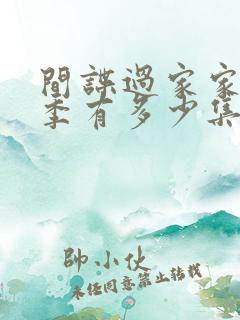 間諜過家家
季有多少集
帥小伙
未经同意禁止转载